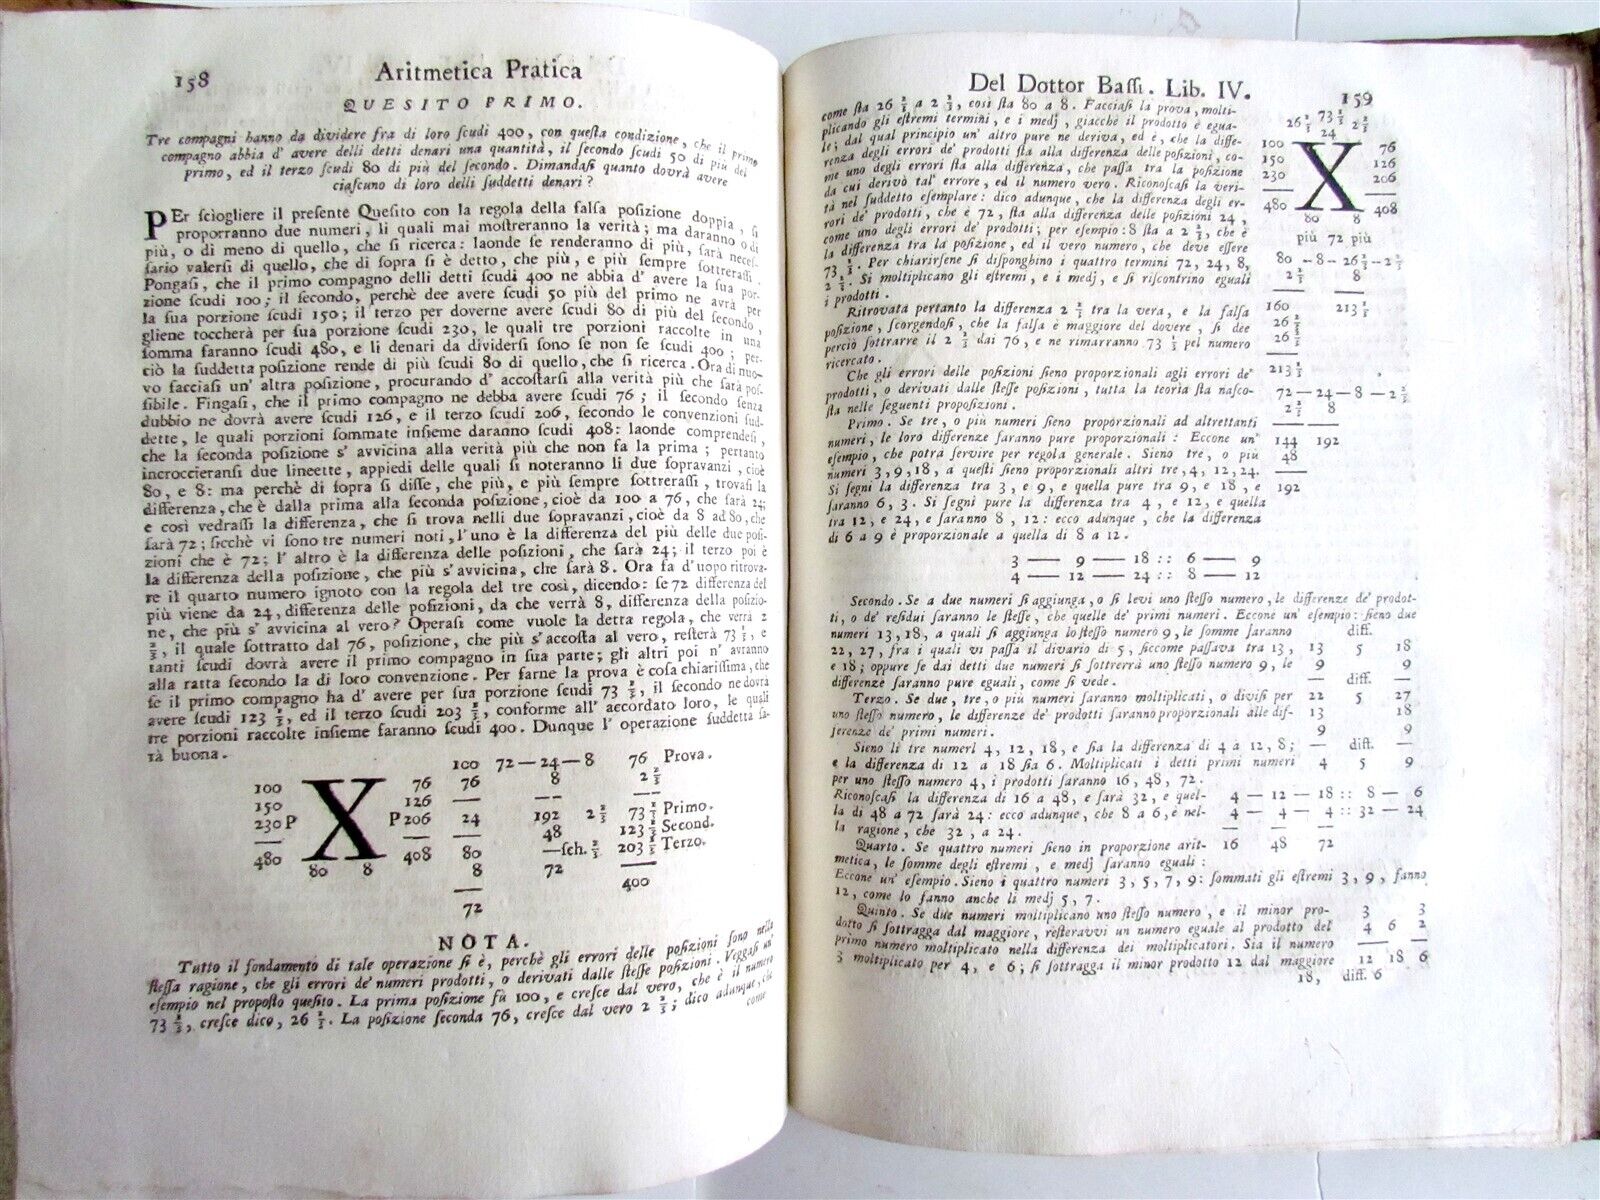 158 Aritmetica Pratica
QUESITO PRIMO.
Tre compagni hanno da dividere fra di loro ſcudi 400, con queſta condizione, che il primo
compagno abbia d' avere delli detti denari una quantità, il ſecondo ſcudi 50 di più del
primo, ed il terzo ſcudi 80 di più del ſecondo. Dimandaſi quanto dovrà avere
ciaſcuno di loro delli ſuddetti denari?
PEr ſciogliere il preſente Queſito con la regola della falſa poſizione doppia, ſi
proporranno due numeri, li quali mai moſtreranno la verità; ma daranno o di
più, o di meno di quello, che ſi ricerca: laonde ſe renderanno di più, ſarà neceſ-
ſario valerſi di quello, che di ſopra ſi è detto, che più, e più ſempre ſottreraſſi.
Pongaſi, che il primo compagno delli detti ſcudi 400 ne abbia d' avere la ſua por-
zione ſcudi 100; il ſecondo, perchè dee avere ſcudi 50 più del primo ne avrà per
la ſua porzione ſcudi 150; il terzo per doverne avere ſcudi 80 di più del ſecondo,
gliene toccherà per ſua porzione ſcudi 230, le quali tre porzioni raccolte in una
ſomma faranno ſcudi 480, e li denari da dividerſi ſono ſe non ſe ſcudi 400; per-
ciò la ſuddetta poſizione rende di più ſcudi 80 di quello, che ſi ricerca. Ora di nuo-
vo facciaſi un' altra poſizione, procurando d' accoſtarſi alla verità più che ſarà poſ-
ſibile. Fingaſi, che il primo compagno ne debba avere ſcudi 76; il ſecondo ſenza
dubbio ne dovrà avere ſcudi 126, e il terzo ſcudi 206, ſecondo le convenzioni ſud-
dette, le quali porzioni ſommate inſieme daranno ſcudi 408: laonde comprendeſi,
che la ſeconda poſizione s' avvicina alla verità più che non fa la prima; pertanto
incroccieranſi due lineette, appiedi delle quali ſi noteranno li due ſopravanzi, cioè
80, e 8: ma perchè di ſopra ſi diſſe, che più, e più ſempre ſottreraſſi, trovaſi la
differenza, che è dalla prima alla ſeconda poſizione, cioè da 100 a 76, che ſarà 24;
e così vedraſſi la differenza, che ſi trova nelli due ſopravanzi, cioè da 8 ad 80, che
ſarà 72; ſicchè vi ſono tre numeri noti, l' uno è la differenza del più delle due poſi-
zioni che è 72; l' altro è la differenza delle poſizioni, che ſarà 24; il terzo poi è
la differenza della poſizione, che più s' avvicina, che ſarà 8. Ora fa d' uopo ritrova-
re il quarto numero ignoto con la regola del tre così, dicendo: ſe 72 differenza del
più viene da 24, differenza delle poſizioni, da che verrà 8, differenza della poſizio-
ne, che più s' avvicina al vero? Operaſi come vuole la detta regola, che verrà 2
⅔, il quale ſottratto dal 76, poſizione, che più s' accoſta al vero, reſterà 73 ⅓, e
tanti ſcudi dovrà avere il primo compagno in ſua parte; gli altri poi n' avranno
alla ratta ſecondo la di loro convenzione. Per farne la prova è coſa chiariſſima, che
ſe il primo compagno ha d' avere per ſua porzione ſcudi 73 ⅓, il ſecondo ne dovrà
avere ſcudi 123 ⅓, ed il terzo ſcudi 203 ⅓, conforme all' accordato loro, le quali
tre porzioni raccolte inſieme faranno ſcudi 400. Dunque l' operazione ſuddetta ſa-
rà buona.
100 72 — 24 — 8 76 Prova.
100 X 76 76 8 2 ⅔
150 126 — — —
230 P P 206 24 192 2 ⅔ 73 ⅓ Primo.
— — — 48 123 ⅓ Second.
480 408 80 —ſch. ⅔ 203 ⅓ Terzo.
80 8 8 72 —
— 400
72
NOTA.
Tutto il fondamento di tale operazione ſi è, perchè gli errori delle poſizioni ſono nella
ſteſſa ragione, che gli errori de' numeri prodotti, o derivati dalle ſteſſe poſizioni. Veggaſi un'
eſempio nel propoſto queſito. La prima poſizione fù 100, e creſce dal vero, che è il numero
73 ⅓, creſce dico, 26 ⅔. La poſizione ſeconda 76, creſce dal vero 2 ⅔; dico adunque, che
come
Del Dottor Baſſi. Lib. IV. 159
come ſta 26 ⅔ a 2 ⅔, così ſta 80 a 8. Facciaſi la prova, molti-
plicando gli eſtremi termini, e i medj, giacchè il prodotto è egua-
le; dal qual principio un' altro pure ne deriva, ed è, che la diffe-
renza degli errori de' prodotti ſta alla differenza delle poſizioni, co-
me uno degli errori ſta alla differenza, che paſſa tra la poſizione
da cui derivò tal' errore, ed il numero vero. Riconoſcaſi la veri-
tà nel ſuddetto eſemplare: dico adunque, che la differenza degli er-
rori de' prodotti, che è 72, ſta alla differenza delle poſizioni 24,
come uno degli errori de' prodotti; per eſempio: 8 ſta a 2 ⅔, che è
la differenza tra la poſizione, ed il vero numero, che deve eſſere
73 ⅓. Per chiarirſene ſi diſponghino i quattro termini 72, 24, 8,
2 ⅔. Si moltiplicano gli eſtremi, e i medj, e ſi riſcontrino eguali
i prodotti.
Ritrovata pertanto la differenza 2 ⅔ tra la vera, e la falſa
poſizione, ſcorgendoſi, che la falſa è maggiore del dovere, ſi dee
perciò ſottrarre il 2 ⅔ dai 76, e ne rimarranno 73 ⅓ pel numero
ricercato.
Che gli errori delle poſizioni ſieno proporzionali agli errori de'
prodotti, o derivati dalle ſteſſe poſizioni, tutta la teoria ſta naſco-
ſta nelle ſeguenti propoſizioni.
Primo. Se tre, o più numeri ſieno proporzionali ad altrettanti
numeri, le loro differenze ſaranno pure proporzionali: Eccone un'
eſempio, che potrà ſervire per regola generale. Sieno tre, o più
numeri 3, 9, 18, a queſti ſieno proporzionali altri tre, 4, 12, 24.
Si ſegni la differenza tra 3, e 9, e quella pure tra 9, e 18, e
ſaranno 6, 3. Si ſegni pure la differenza tra 4, e 12, e quella
tra 12, e 24, e ſaranno 8, 12: ecco adunque, che la differenza
di 6 a 9 è proporzionale a quella di 8 a 12.
73 ⅓
26 ⅔ 2 ⅔
24
100 X 76
150 126
230 206
— —
480 408
80 8
più 72 più
80 — 8 — 26 — 2 ⅔
2 ⅔ 8
— —
160 213 ⅓
26 ⅔
26 ⅔
—
213 ⅓
72 — 24 — 8 — 2 ⅔
2 ⅔ 8
— —
144 192
48
—
192
3 — 9 — 18 :: 6 — 9
4 — 12 — 24 :: 8 — 12
Secondo. Se a due numeri ſi aggiunga, o ſi levi uno ſteſſo numero, le differenze de' prodot-
ti, o de' reſidui ſaranno le ſteſſe, che quelle de' primi numeri. Eccone un' eſempio: ſieno due
numeri 13, 18, a quali ſi aggiunga lo ſteſſo numero 9, le ſomme ſaranno
22, 27, fra i quali vi paſſa il divario di 5, ſiccome paſſava tra 13,
e 18; oppure ſe dai detti due numeri ſi ſottrerrà uno ſteſſo numero 9, le
differenze ſaranno pure eguali, come ſi vede.
Terzo. Se due, tre, o più numeri ſaranno moltiplicati, o diviſi per
uno ſteſſo numero, le differenze de' prodotti ſaranno proporzionali alle dif-
ferenze de' primi numeri.
Sieno li tre numeri 4, 12, 18, e ſia la differenza di 4 a 12, 8;
e la differenza di 12 a 18 ſia 6. Moltiplicati i detti primi numeri
per uno ſteſſo numero 4, i prodotti ſaranno 16, 48, 72.
diff.
13 5 18
9 9
— diff. —
22 5 27
13 18
9 9
— diff. —
4 5 9
Riconoſcaſi la differenza di 16 a 48, e ſarà 32, e quel-
la di 48 a 72 ſarà 24: ecco adunque, che 8 a 6, e nel-
la ragione, che 32, a 24.
4 — 12 — 18 :: 8 — 6
4 — 4 — 4 :: 32 — 24
— — —
16 48 72
Quarto. Se quattro numeri ſieno in proporzione arit-
metica, le ſomme degli eſtremi, e medj ſaranno eguali:
Eccone un' eſempio. Sieno i quattro numeri 3, 5, 7, 9: ſommati gli eſtremi 3, 9, fanno
12, come lo fanno anche li medj 5, 7.
Quinto. Se due numeri moltiplicano uno ſteſſo numero, e il minor pro-
dotto ſi ſottragga dal maggiore, reſteravvi un numero eguale al prodotto del
primo numero moltiplicato nella differenza dei moltiplicatori. Sia il numero
3 moltiplicato per 4, e 6; ſi ſottragga il minor prodotto 12 dal maggiore
18,
3 3
4 6 2
— —
12 18 6
diff. 6